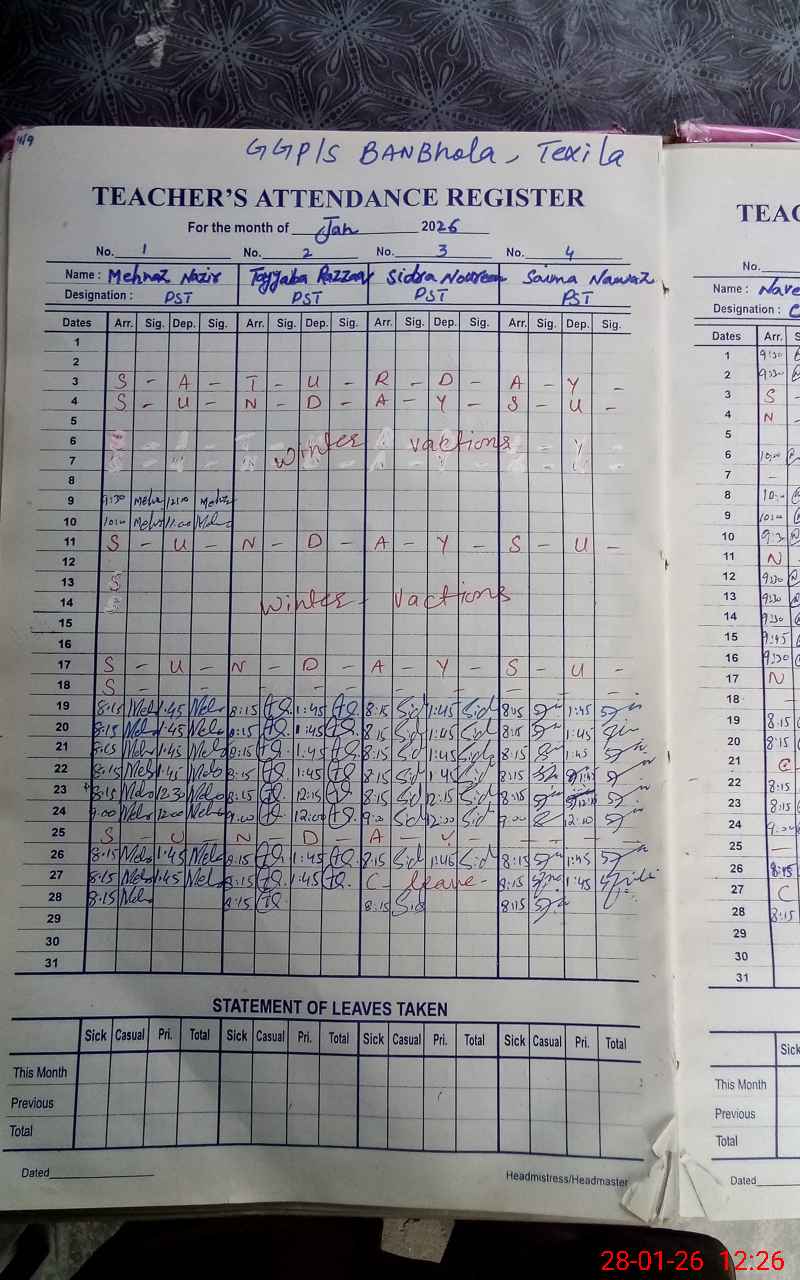 GGP/S BANBhola, Texila
TEACHER'S ATTENDANCE REGISTER
For the month of Jan 2026
No. 1 No. 2 No. 3 No. 4
Name : Mehnaz Nazir Tayyaba Razzaq Sidra Noureen Saima Nawaz
Designation : PST PST PST PST
Dates Arr. Sig. Dep. Sig. Arr. Sig. Dep. Sig. Arr. Sig. Dep. Sig. Arr. Sig. Dep. Sig.
1
2
3 S - A - T - U - R - D - A - Y -
4 S - U - N - D - A - Y - S - U -
5
6 winter vactions
7
8
9 9:30 Mehn 12:00 Mehn
10 10:00 Mehn 11:00 Mehn
11 S - U - N - D - A - Y - S - U -
12
13 S
14 winter - vactions
15
16
17 S - U - N - D - A - Y - S - U -
18 S - - - - - -
19 8:15 Meh 1:45 Meh 8:15 1:45 8:15 Sid 1:45 Sid 8:15 1:45
20 8:15 Meh 1:45 Meh 8:15 1:45 8:15 Sid 1:45 Sid 8:15 1:45
21 8:15 Meh 1:45 Meh 8:15 1:45 8:15 Sid 1:45 Sid 8:15 1:45
22 8:15 Meh 1:45 Meh 8:15 1:45 8:15 Sid 1:45 Sid 8:15 1:45
23 8:15 Meh 12:30 Meh 8:15 12:15 8:15 Sid 12:15 Sid 8:15
24 9:00 Meh 12:00 Meh 9:00 12:00 9:00 Sid 12:00 Sid 9:00 12:00
25 S - U - N - D - A - Y - - - -
26 8:15 Meh 1:45 Meh 8:15 1:45 8:15 Sid 1:45 Sid 8:15 1:45
27 8:15 Meh 1:45 Meh 8:15 1:45 C - leave - 8:15 1:45
28 8:15 Meh 8:15 8:15 Sid 8:15
29
30
31
STATEMENT OF LEAVES TAKEN
Sick Casual Pri. Total Sick Casual Pri. Total Sick Casual Pri. Total Sick Casual Pri. Total
This Month
Previous
Total
Dated
Headmistress/Headmaster
TEAC
No.
Name : Nave
Designation : C
Dates Arr. S
1 9:30
2 9:30
3 S
4 N
5
6 10:00
7 -
8 10:
9 10:00
10 9:3
11 N
12 9:30
13 9:30
14 9:30
15 9:45
16 9:30
17 N
18 -
19 8:15
20 8:15
21 C
22 8:15
23 8:15
24 9:00
25 -
26 8:15
27 C
28 8:15
29
30
31
Sick
This Month
Previous
Total
Dated
28-01-26 12:26